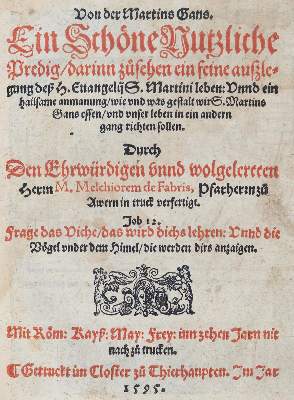 Von der Martins Gans.
Ein Schöne Nutzliche
Predig/darinn zůsehen ein feine außle-
gung deß H. Euangelij S. Martini leben: Vnnd ein
hailsame anmanung/wie vnd was gestalt wir S. Martins
Gans essen/vnd vnser leben in ein andern
gang richten sollen.
Durch
Den Ehrwürdigen vnnd wolgelerten
Herrn M. Melchiorem de Fabris, Pfarherrn zů
Awern in truck verfertigt.
Job 12.
Frage das Viche/das wird dichs lehren: Vnnd die
Vögel vnder dem Himel/die werden dirs anzaigen.
Mit Röm: Kayß: May: Frey: inn zehen Jarn nit
nach zů trucken.
Getruckt im Closter zů Thierhaupten. Im Jar
1595.